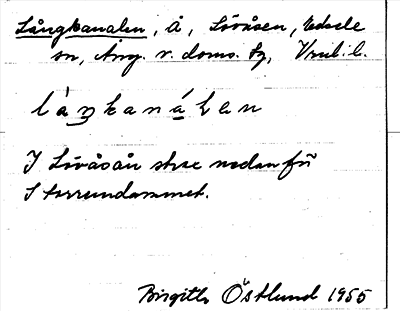 Långkanalen, å, Lövåsen, Edsele
sn, Ång. v. doms. bg, Vnl. l.
lánkanálen
I Lövåsån strax nedanför
Storrundammet.
Birgitta Östlund 1955